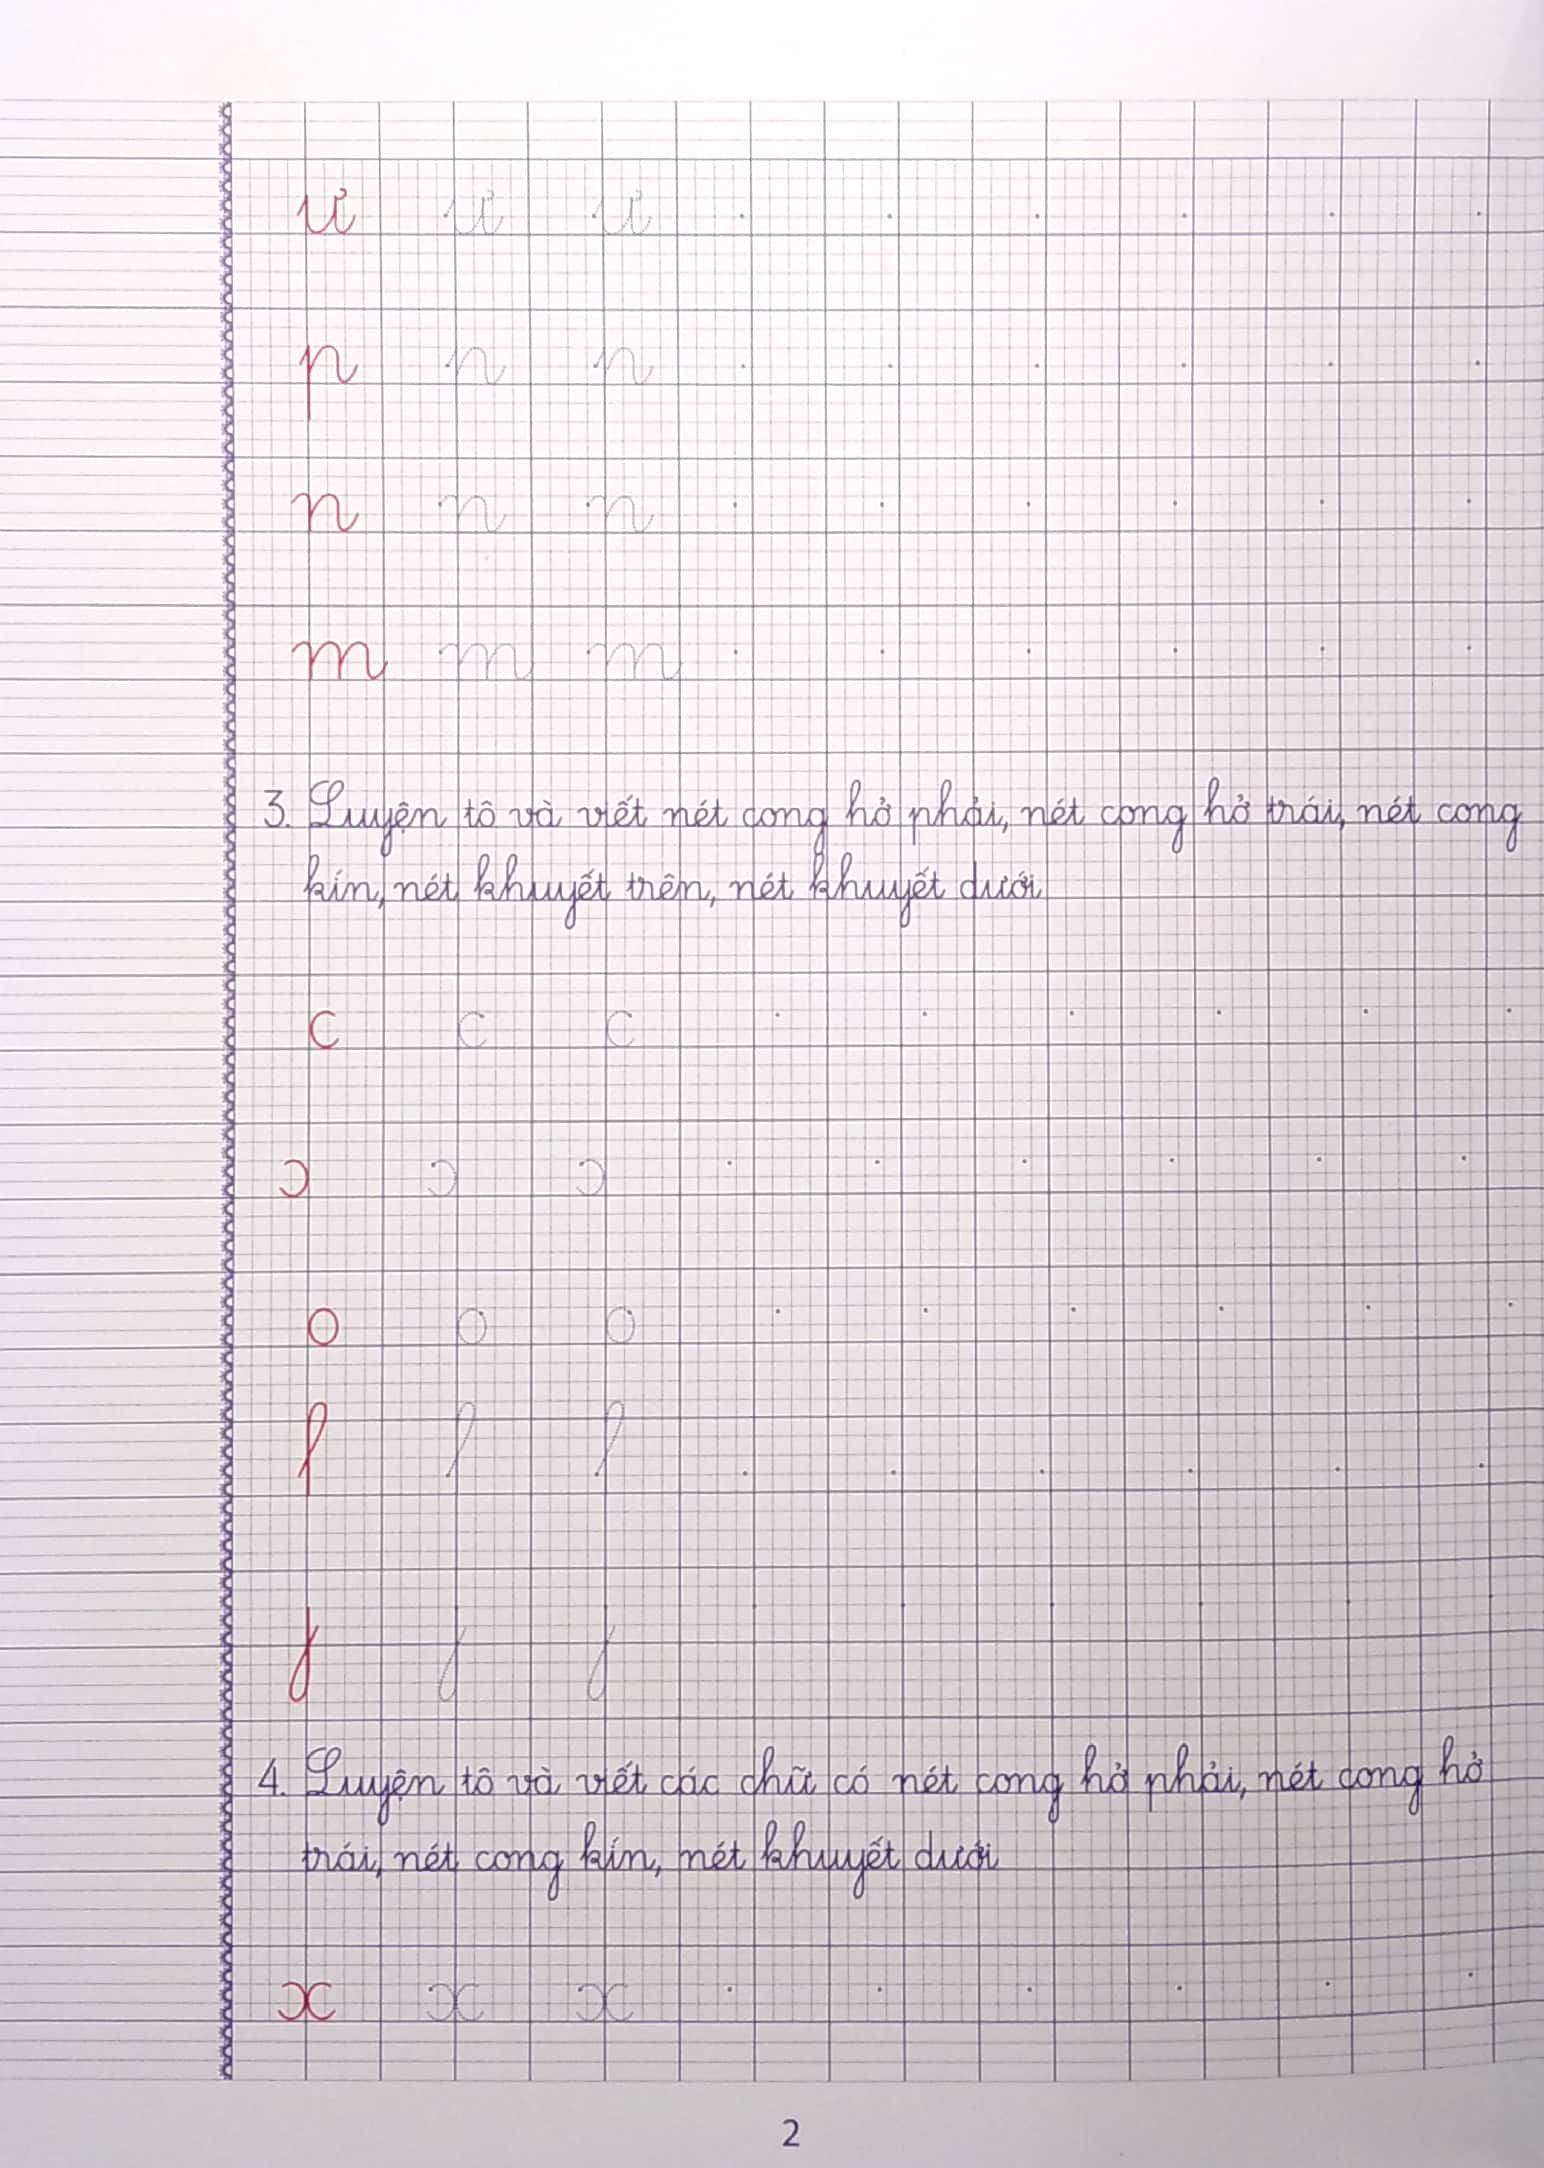 ư ư ư
p n n
n n n
m m m
3. Luyện tô và viết nét cong hở phải, nét cong hở trái, nét cong
kín, nét khuyết trên, nét khuyết dưới
c c c
ɔ ɔ ɔ
o o o
4. Luyện tô và viết các chữ có nét cong hở phải, nét cong hở
trái, nét cong kín, nét khuyết dưới
x x x
2